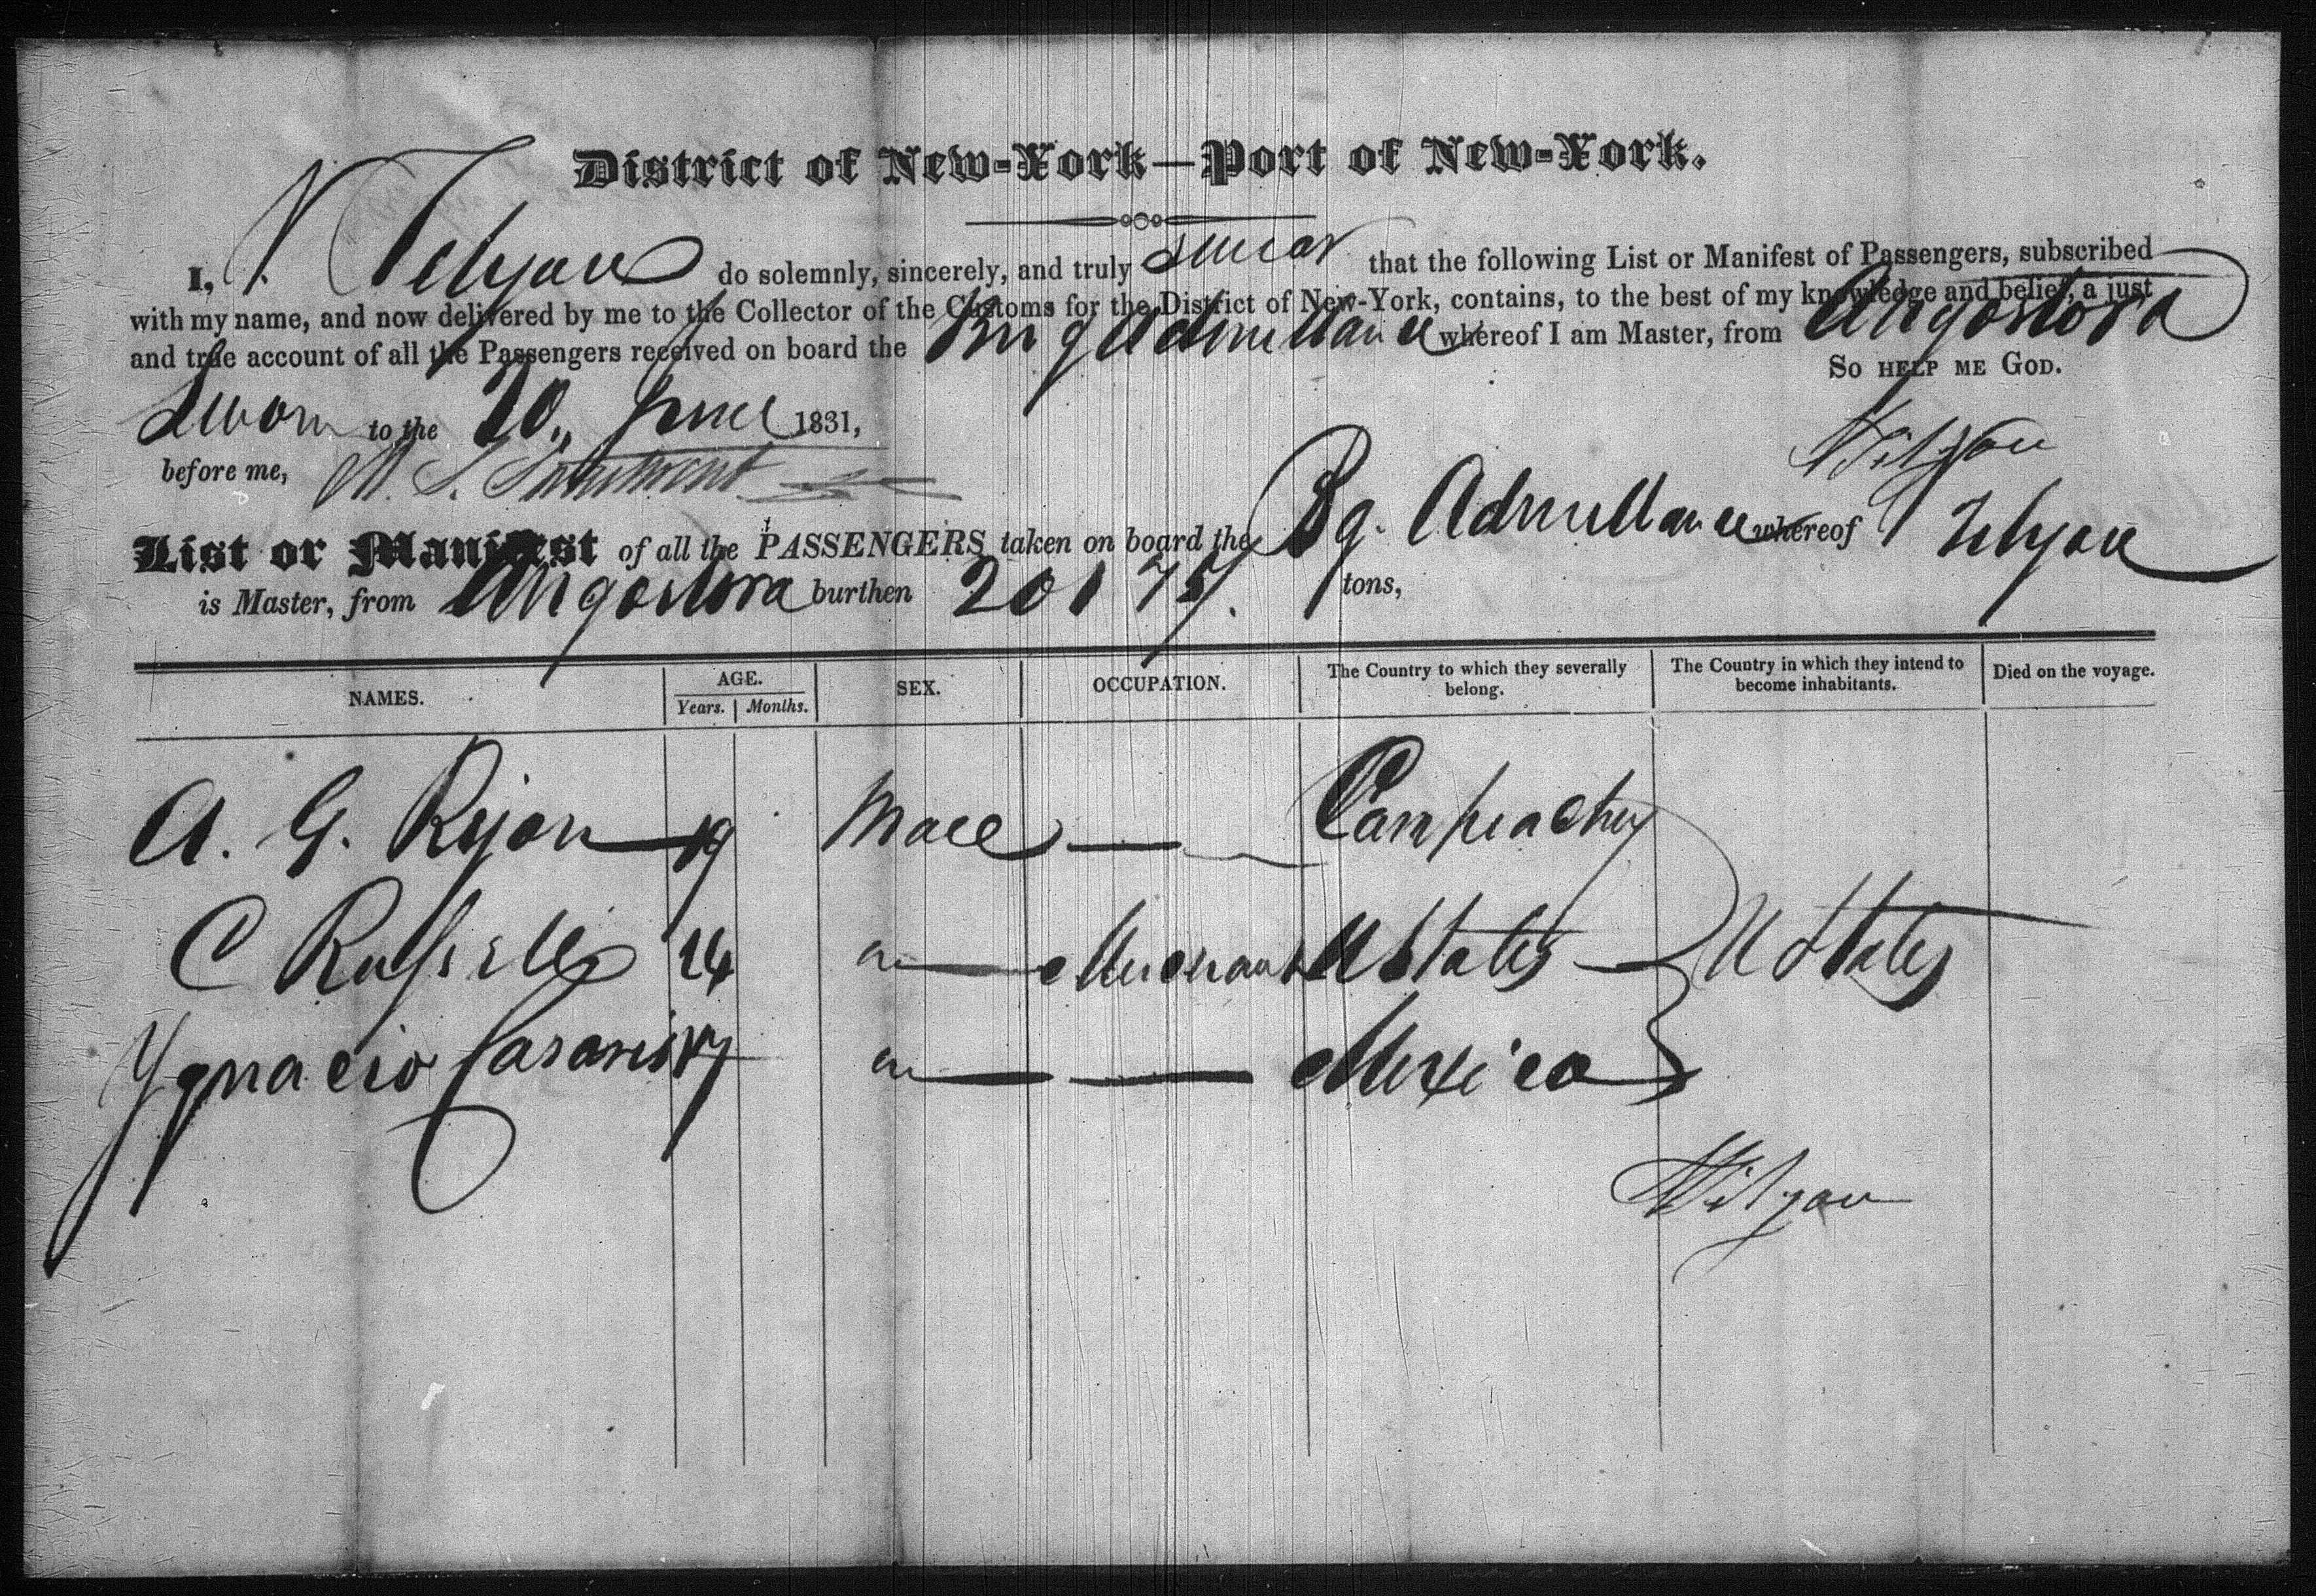 District of New-York—Port of New-York.
I, N Telyou do solemnly, sincerely, and truly swear that the following List or Manifest of Passengers, subscribed
with my name, and now delivered by me to the Collector of the Customs for the District of New-York, contains, to the best of my knowledge and belief, a just
and true account of all the Passengers received on board the Brig whereof I am Master, from Angostora
So HELP ME GOD.
Sworn to the 20,, June 1831,
before me,
List or Manifest of all the PASSENGERS taken on board the Bg. whereof
is Master, from Angostora burthen 201 tons,
NAMES. AGE. SEX. OCCUPATION. The Country to which they severally belong. The Country in which they intend to become inhabitants. Died on the voyage.
Years. Months.
A. G. Rejon 19 Male — Campeachy
C Russell 24 Merchant U States — U States
Ygnacio 17 — Mexico